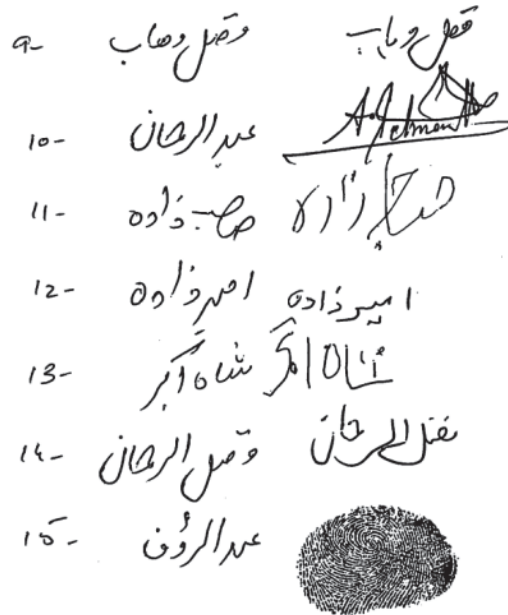 9- فضل وهاب فضل وهاب
10- عبد الرحمان A. Rehman
11- صاحب ذاده
12- امیر ذاده امیر ذاده
13- شاه اکبر شاه اکبر
14- فضل الرحمان فضل الرحمان
15- عبد الرؤف